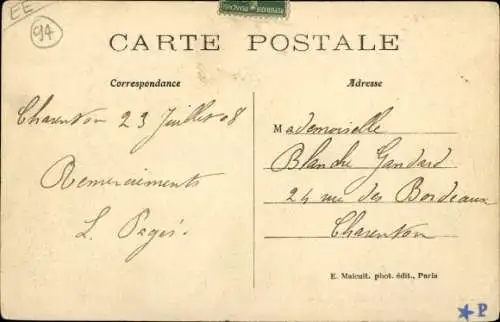 EE
94
CARTE POSTALE
Correspondance
Adresse
Charenton 23 Juillet 08
Remerciements
L. Pagès.
Mademoiselle
Blanche Gandard
24 rue des Bordeaux
Charenton
E. Malcuit, phot. édit., Paris
P